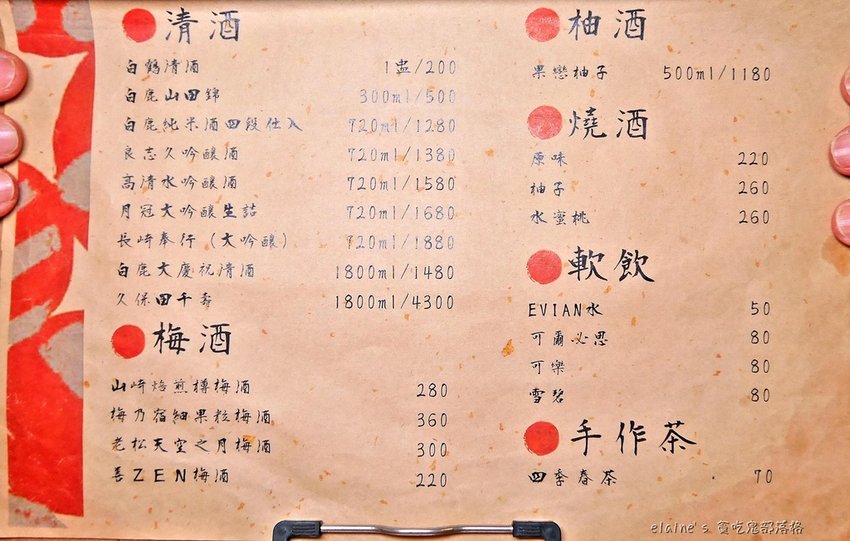 清酒
白鶴清酒 1盅/200
白鹿山田錦 300ml/500
白鹿純米酒四段仕入 720ml/1280
良志久吟釀酒 720ml/1380
高清水吟釀酒 720ml/1580
月冠大吟釀生詰 720ml/1680
長崎奉行(大吟釀) 720ml/1880
白鹿大慶祝清酒 1800ml/1480
久保田千壽 1800ml/4300
梅酒
山崎焙煎樽梅酒 280
梅乃宿細果粒梅酒 360
老松天空之月梅酒 300
善ZEN梅酒 220
柚酒
果戀柚子 500ml/1180
燒酒
原味 220
柚子 260
水蜜桃 260
軟飲
EVIAN水 50
可爾必思 80
可樂 80
雪碧 80
手作茶
四季春茶 70
elaine's 貪吃鬼部落格